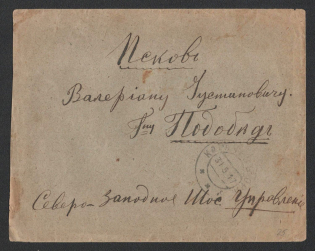 Псковъ
Валеріану Густановичу
Гну
Северо Западное Шос. Управлен